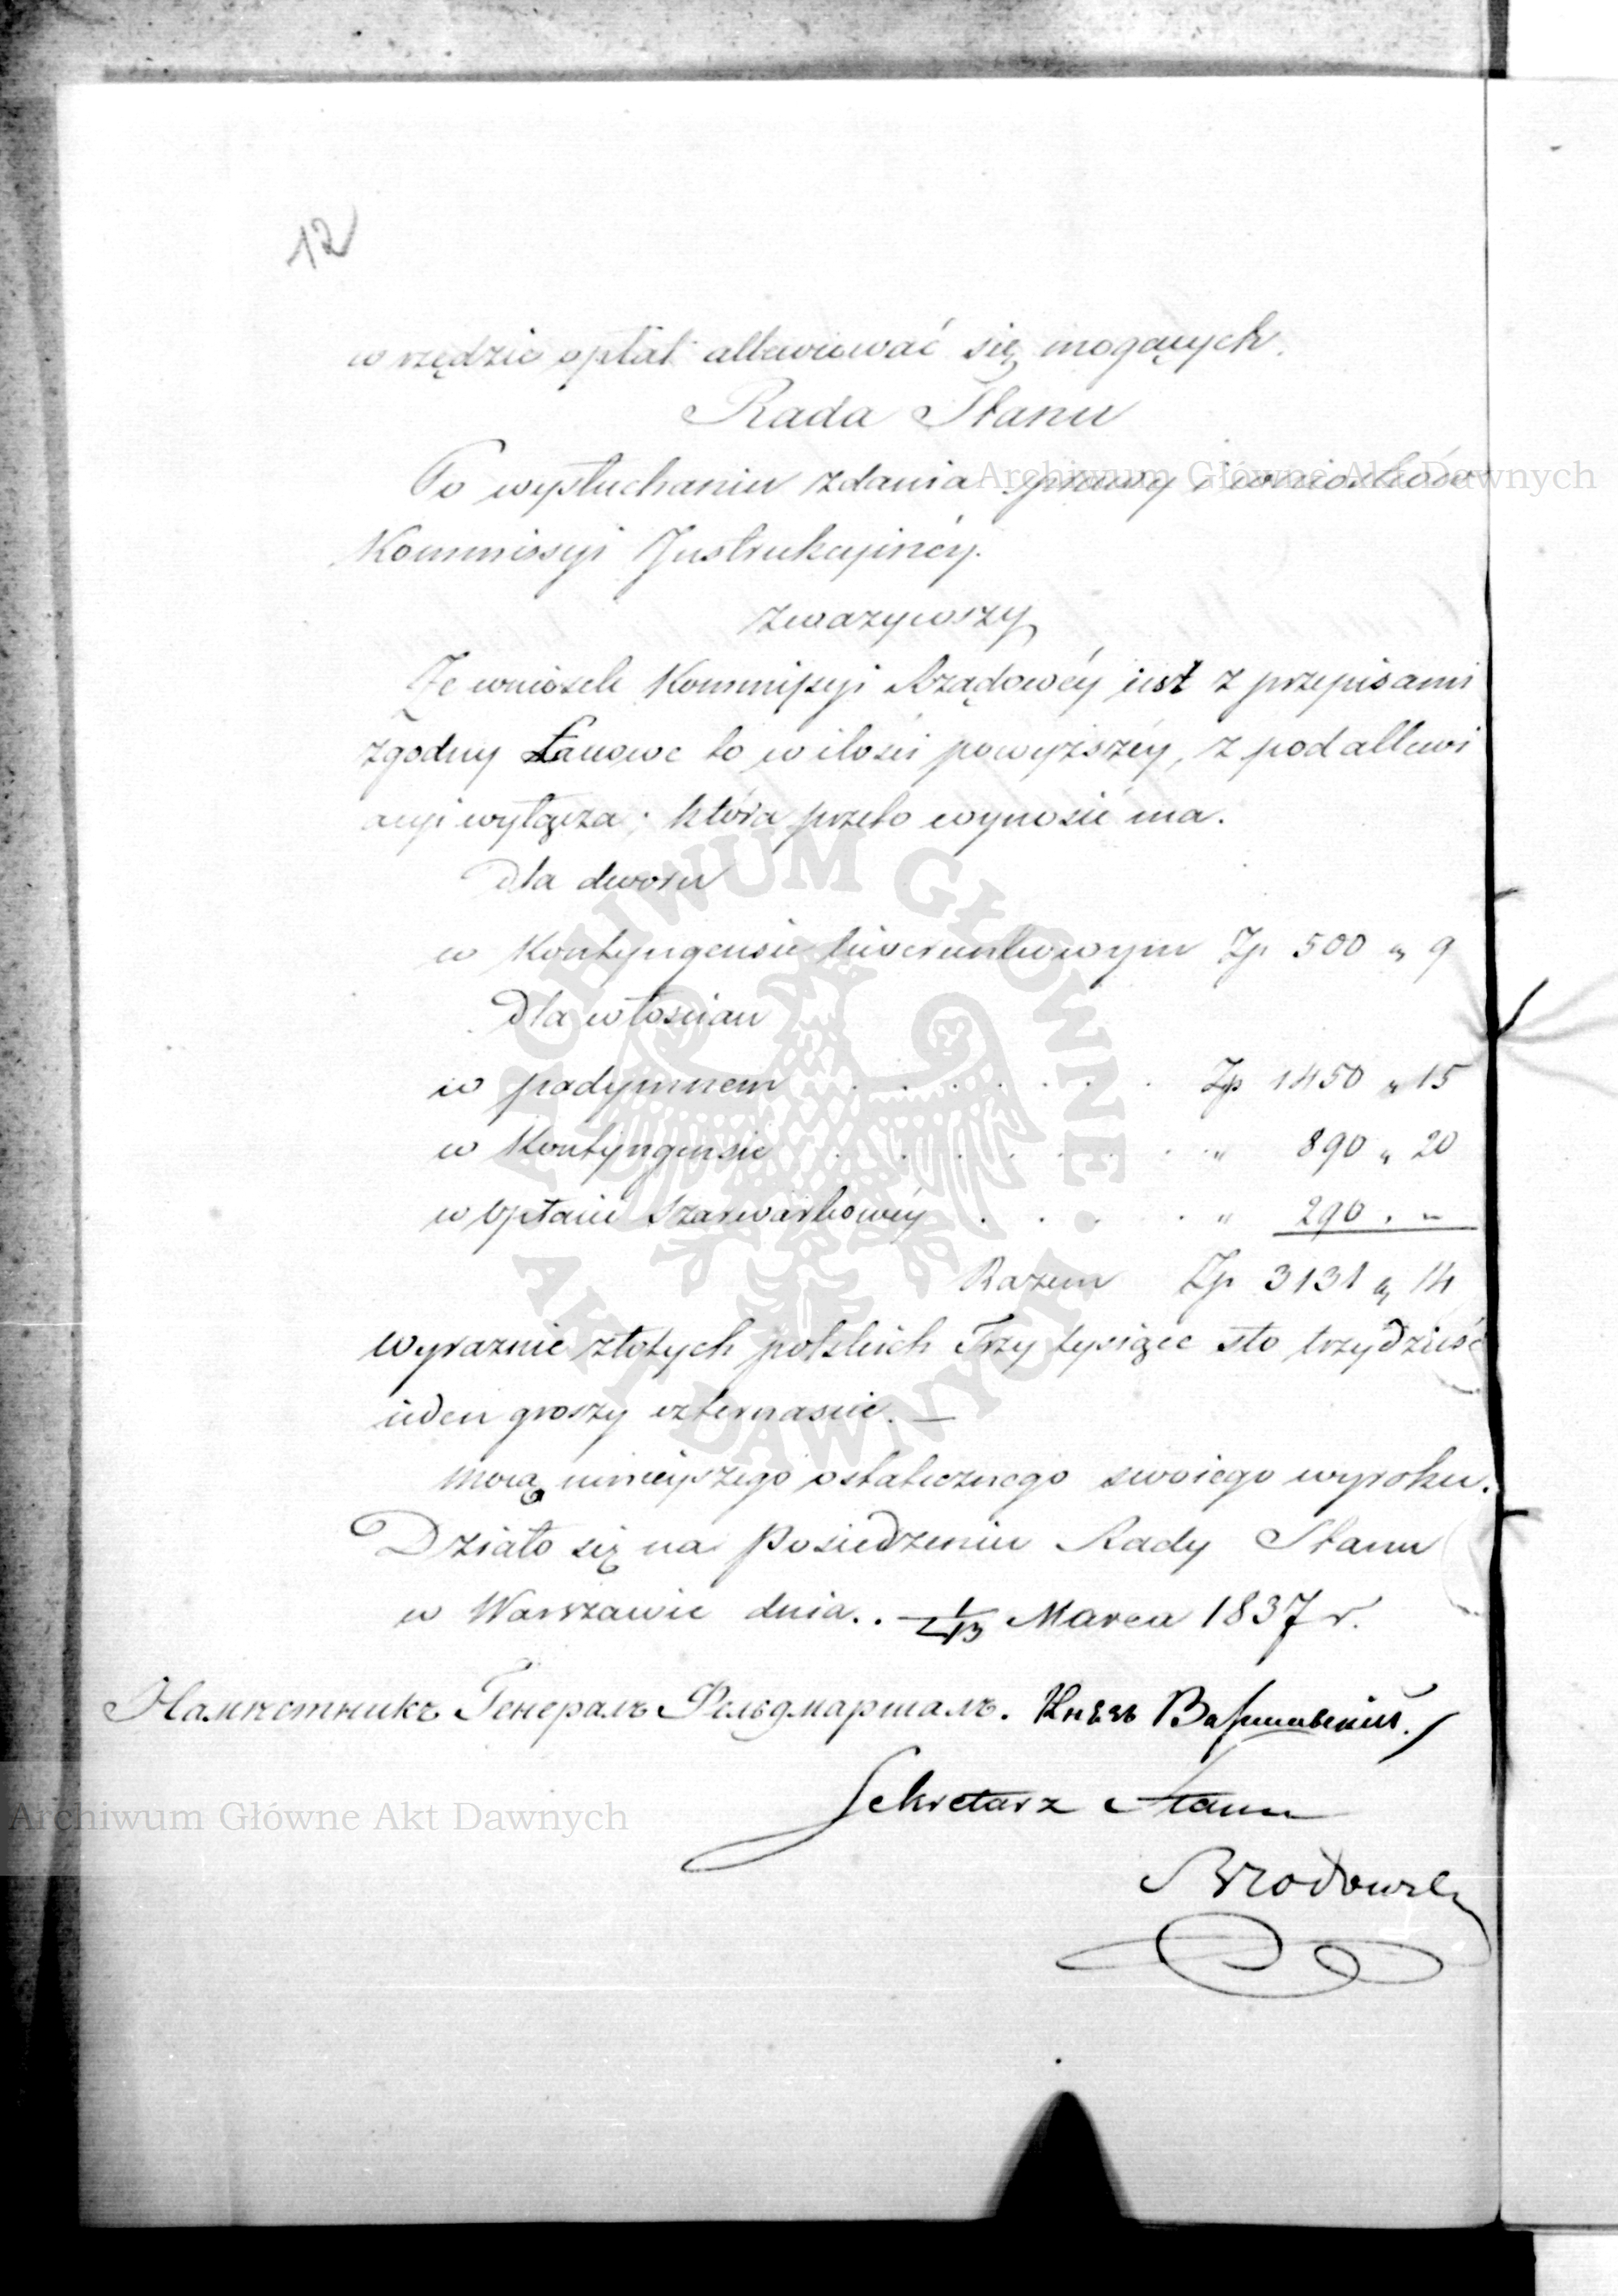 12
w rzędzie opłat allewiować się mogących.
Rada Stanu
Po wysłuchaniu zdania sprawy i wniosków
Kommissyi Instrukcyinéy.
zważywszy
Że wniosek Kommissyi Rządowéy iest z przepisami
zgodny Łanowe to w ilości powyższéy, z pod allewi
acyi wyłącza; która przeto wynosić ma.
Dla dworu
w Kontyngensie liwerunkowym Zp 500 „ 9
Dla włościan
w podymnem . . . . . . . Zp 1450 „ 15
w Kontyngensie . . . . . . . „ 890 „ 20
w Opłacie Szarwarkowéy . . . . „ 290 . „
Razem Zp 3131 „ 14
Wyraznie złotych polskich Trzy tysiące sto trzydzieści
ieden groszy czternaście. —
Mocą ninieyszego ostatecznego swoiego wyroku.
Działo się na Posiedzeniu Rady Stanu
w Warszawie dnia . . 1/13 Marca 1837 r.
Намѣстникъ Генералъ Фельдмаршалъ. Князь Варшавскій.
Sekretarz Stanu
Brodowski
Archiwum Główne Akt Dawnych
Archiwum Główne Akt Dawnych
ARCHIWUM GŁÓWNE AKT DAWNYCH